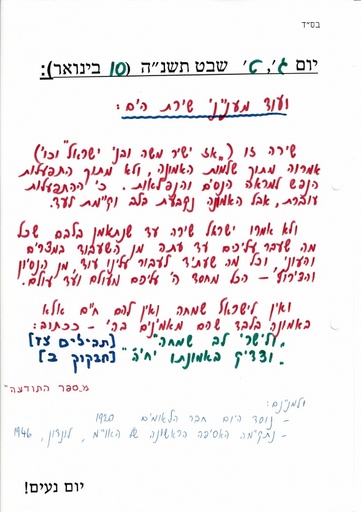 בס״ד
יום ג׳, ט׳ שבט תשנ״ה (10 בינואר):
ועוד מעניני שירת הים:
שירה זו („אז ישיר משה ובני ישראל״ וכו׳)
אמרוה מתוך שלמות האמונה, ולא מתוך התפעלות
הנפש למראה הנסים והנפלאות. כי ההתפעלות
עוברת, אבל האמונה נקבעת בלב וקימת לעד.
ולא אמרו ישראל שירה עד שנתאמן בלבם שכל
מה שעבר עליהם עד עתה מן השעבוד במצרים
והעוני, וכל מה שעתיד לעבור עלינו עוד, מן הנסיון
והצירוף – הכל מחסד ה׳ עליהם מעולם ועד עולם.
ואין לישראל שמחה ואין להם חיים אלא
באמונה בלבד שהם מאמינים בה׳ – ככתוב:
„ולישרי לב שמחה״ [תהילים צז]
„וצדיק באמונתו יחיה״ [חבקוק ב]
מ„ספר התודעה״
ולמנינם:
– נוסד היום חבר הלאומים 1920
– נתקימה האסיפה הראשונה של האו״ם, לונדון, 1946
יום נעים!